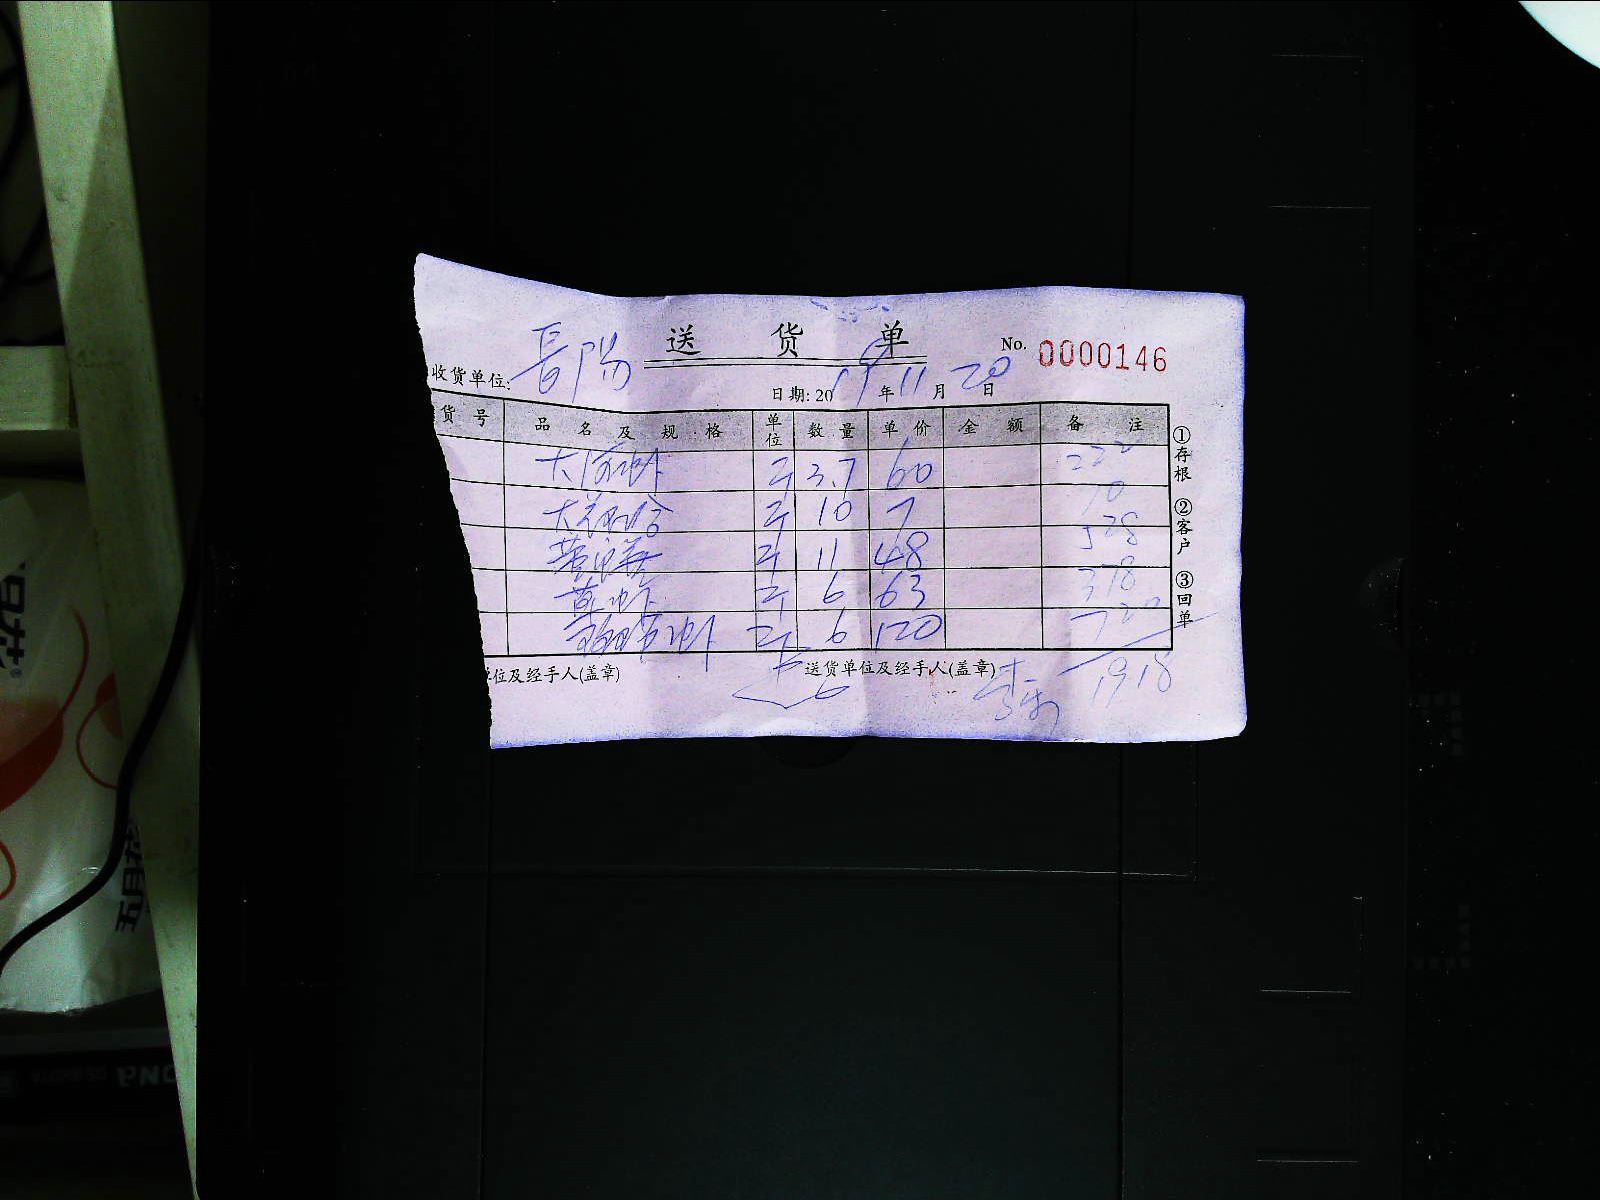 送 货 单
No. 0000146
收货单位: 長阳
日期: 2019 年 11 月 20 日
货号 品名及规格 单位 数量 单价 金额 备注
大河虾 斤 3.7 60 222
大 斤 10 7 70
斤 11 48 528
草虾 斤 6 63 378
虾 斤 6 120 720
①存根 ②客户 ③回单
单位及经手人(盖章) 送货单位及经手人(盖章)
1918